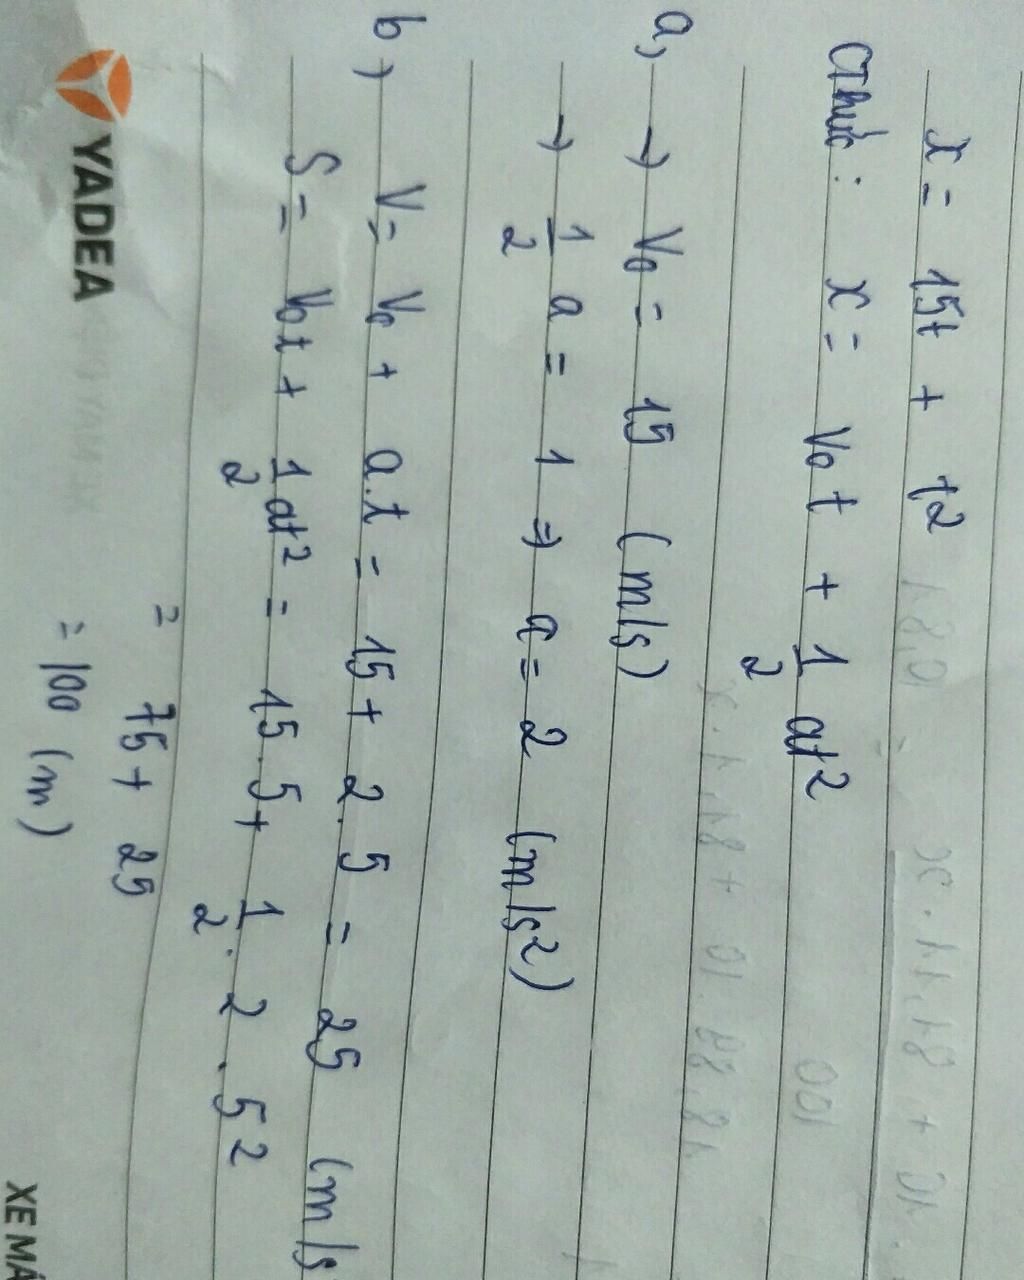 x = 15t + t2
CThức : x = V0t + 1/2 at2
a, → V0 = 15 (m/s)
→ 1/2 a = 1 ⇒ a = 2 (m/s2)
b) V = V0 + a.t = 15 + 2.5 = 25 (m/s
S = V0t + 1/2 at2 = 15.5 + 1/2 . 2 . 52
= 75 + 25
= 100 (m)
YADEA
XE MÁ